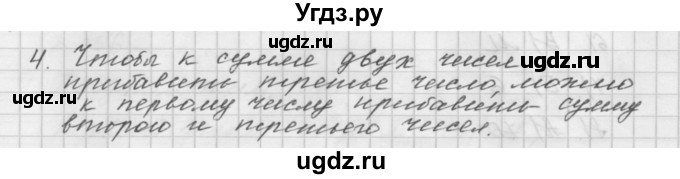 Угдз.ру
4. Чтобы к сумме двух чисел
прибавить третье число, можно
к первому числу прибавить сумму
второго и третьего чисел.
ugdz.ru ugdz.ru
ugdz.ru ugdz.ru
ugdz.ru ugdz.ru
ugdz.ru